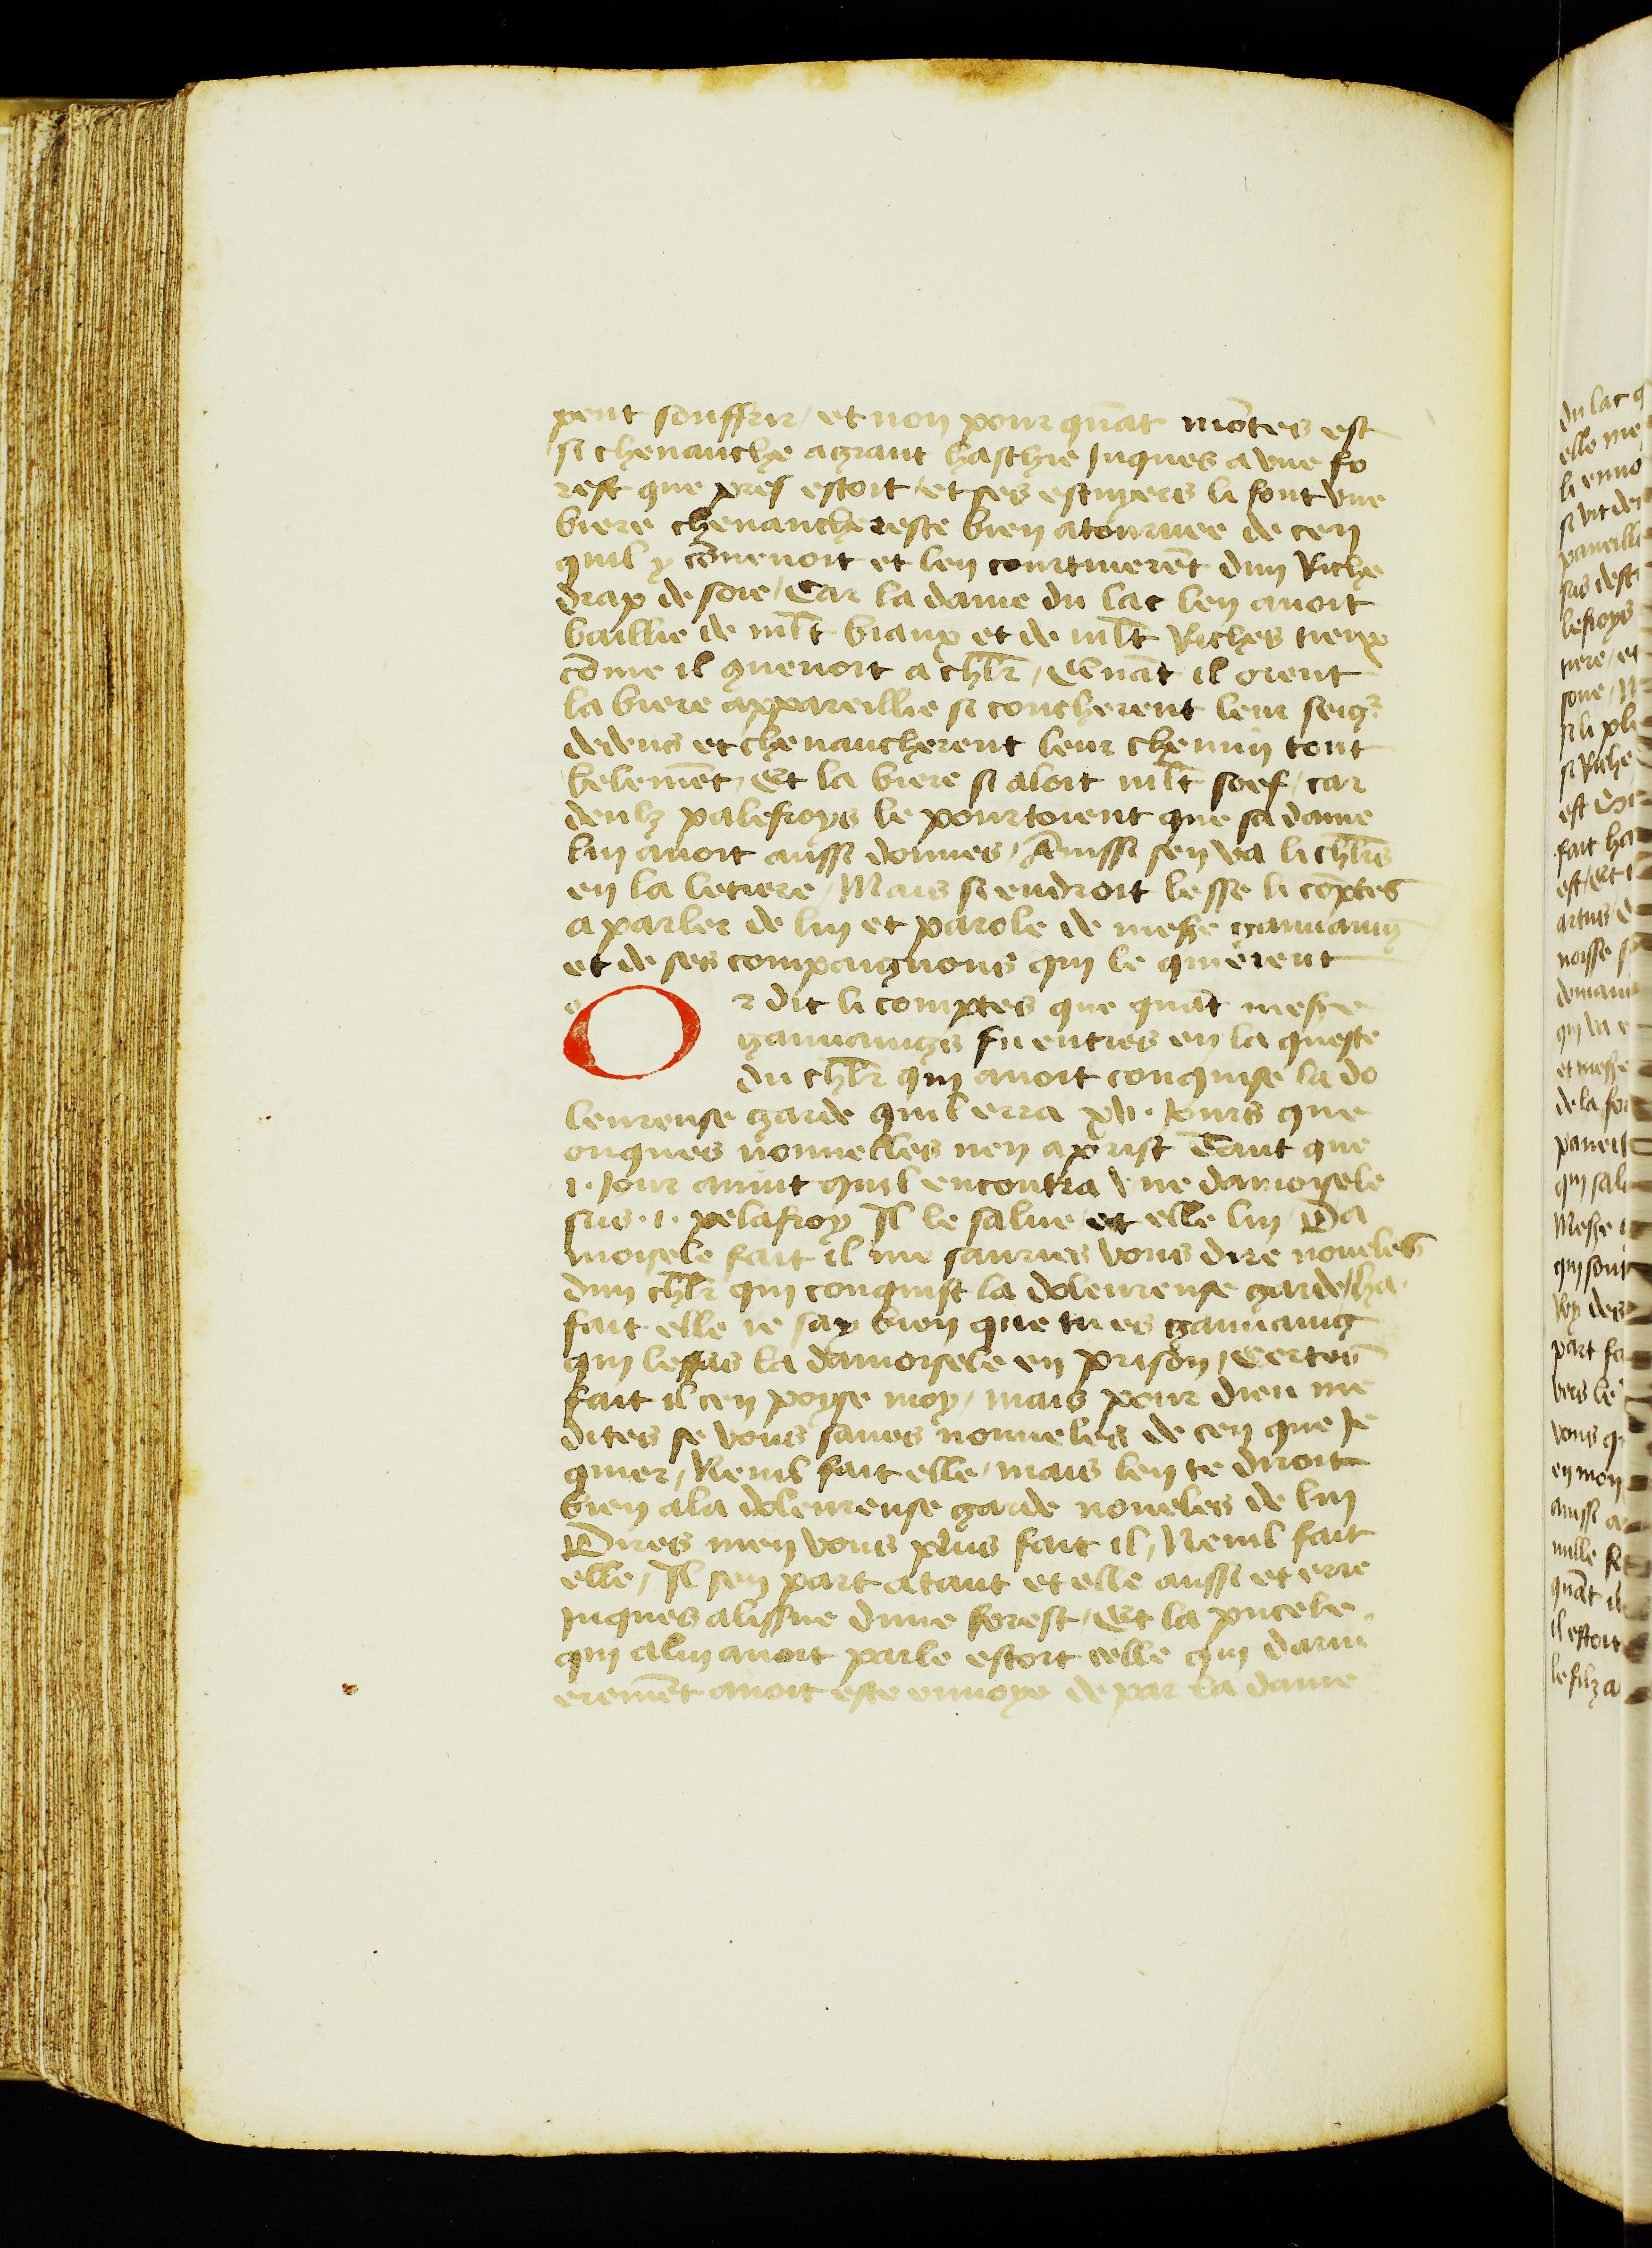 peut souffrir / et non pour qua᷑t mo᷑tes est
si cheuauche a grant hasthie Juques a vne fo
rest que pres estoit / et ses escuyers li font vne
biere cheuaucheresce bien atournee de cen
quil y co᷑uenoit et len couruirere᷑t dun Riche
drap de soie / Car la dame du lac len auoit
baillie de ml᷑t biaux et de ml᷑t Riches tieux
co᷑me il quenoit a chl᷑r / Qua᷑t il orent
la biere appareillie si coucherent leur seigr᷑
dedens et cheuaucherent leur chemin tout
beleme᷑t / Et la biere si aloit ml᷑t soef / car
deulz palefroys le pourtoient que sa dame
lui auoit aussi donnes / Ainssi sen va li chl᷑rs
en la letiere / Mais si endroit lesse li co᷑ptes
a parler de lui et parole de mesire gauuaing
et de ses compaignons qui le quierent
Or dit li comptes que qua᷑t mesire
gauuaings fu entres en la queste
du chl᷑r qui auoit conquise la do
leureuse garde quil erra xv. Jours que
onques nouuelles nen aprist Tant que
.i. Jour auint quil encontra vne damoisele
sus .i. pelafroy Il le salue et elle lui / Da
moisele fait il me sauries vous dire noueles
dun chl᷑r qui conquist la doleureuse garde / ha.
fait elle ie say bien que tu es gauuaing
qui lessas la damoisele en prison / Certes
fait il cen poyse moy / mais pour dieu me
dites se vous saues nouueles de cen que Je
quier / Nenil fait elle / mais len te diroit
bien a la doleureuse garde noueles de lui
Dires men vous plus fait il / Nenil fait
elle / Il sen part atant et elle aussi et erre
Juques alissue dune forest / Et la pucele
qui a lui auoit parle estoit celle qui darni
ereme᷑t auoit este enuoye de par la dame
du lac q
elle me
li enuo
si vit de
pareilli
sus dest
lefroys
tiere / et
sone / N
si li pl
si Riche
est
fait ha
est / Et
artus / d
noisse s
demand
qui va
et mesire
de la for
pareil
qui sal
Mesire
qui sont
Roy des
part fa
vers le
vous q
en mon
aussi a
nulle
qua᷑t il
il estoit
le filz a